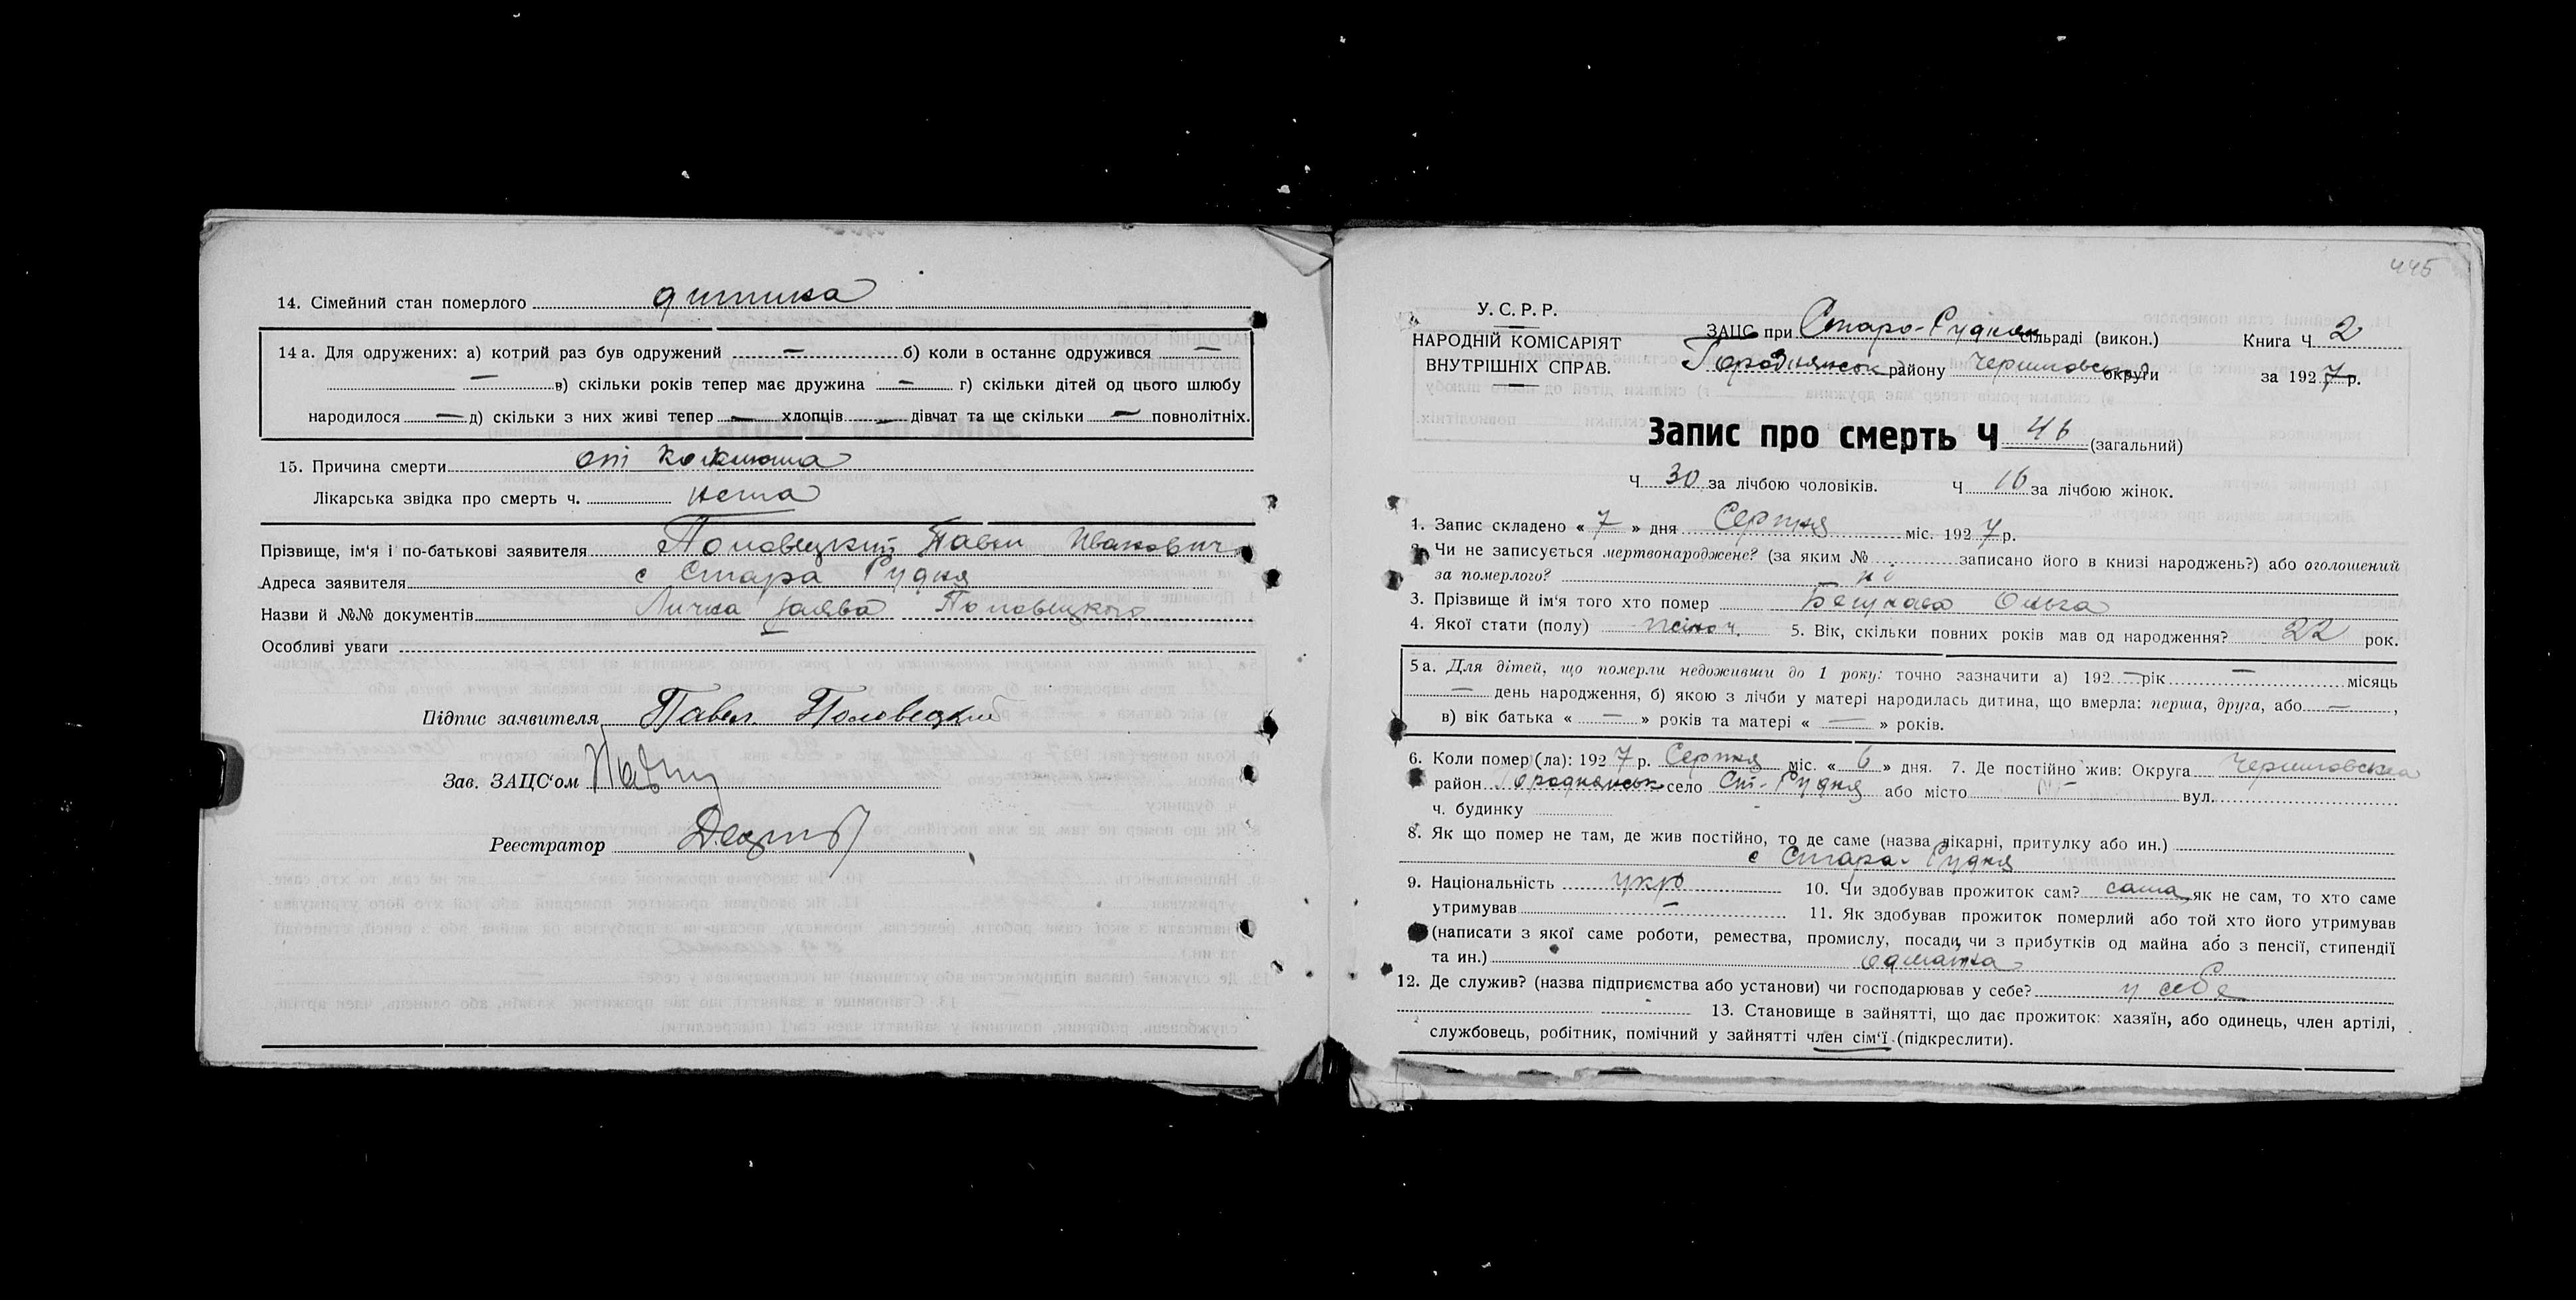 14. Сімейний стан померлого дитина
14 а. Для одружених: а) котрий раз був одружений — б) коли в останнє одружився —
— в) скільки років тепер має дружина — г) скільки дітей од цього шлюбу
народилося — д) скільки з них живі тепер — хлопців — дівчат та ще скільки — повнолітніх.
15. Причина смерти от коклюша
Лікарська звідка про смерть ч. нема
Прізвище, ім'я і по-батькові заявителя Половецкий Павел Иванович
Адреса заявителя с Стара Рудня
Назви й №№ документів Лична заява Половецкого
Особливі уваги
Підпис заявителя Павел Половецкий
Зав. ЗАЦС'ом
Реєстратор
445
У. С. Р. Р.
НАРОДНІЙ КОМІСАРІЯТ
ВНУТРІШНІХ СПРАВ.
ЗАЦС при Старо-Руднян сільраді (викон.)
Городнянськ району Черниговської округи
Книга Ч 2
за 1927 р.
Запис про смерть Ч 46 (загальний)
Ч 30 за лічбою чоловіків. Ч 16 за лічбою жінок.
1. Запис складено « 7 » дня Серпня міс. 1927 р.
2. Чи не записується мертвонароджене? (за яким № записано його в книзі народжень?) або оголошений
за померлого? ні
3. Прізвище й ім'я того хто помер Ольга
4. Якої стати (полу) жіноч. 5. Вік, скільки повних років мав од народження? 22 рок.
5 а. Для дітей, що померли недоживши до 1 року: точно зазначити а) 192 — рік — місяць
— день народження, б) якою з лічби у матері народилась дитина, що вмерла: перша, друга, або — ,
в) вік батька « — » років та матері « — » років.
6. Коли помер (ла): 1927 р. Серпня міс. « 6 » дня. 7. Де постійно жив: Округа Черниговська
район Городнянськ село Ст-Рудня або місто — вул.
ч. будинку
8. Як що помер не там, де жив постійно, то де саме (назва лікарні, притулку або ин.)
с Стара-Рудня
9. Національність укр 10. Чи здобував прожиток сам? сама як не сам, то хто саме
утримував — 11. Як здобував прожиток померлий або той хто його утримував
(написати з якої саме роботи, ремества, промислу, посади, чи з прибутків од майна або з пенсії, стипендії
та ин.)
12. Де служив? (назва підприємства або установи) чи господарював у себе? у себе
13. Становище в зайнятті, що дає прожиток: хазяїн, або одинець, член артілі,
службовець, робітник, помічний у зайнятті член сім'ї (підкреслити).